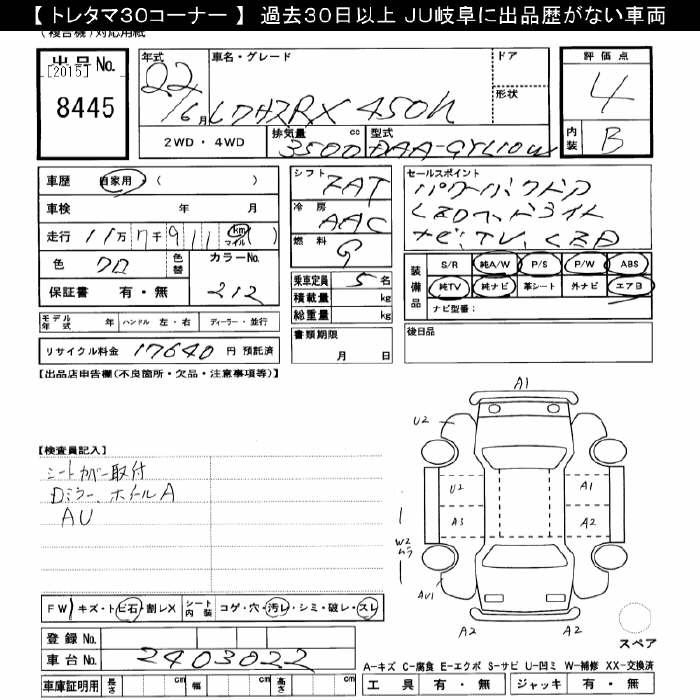 【 トレタマ30コーナー 】 過去30日以上 JU岐阜に出品歴がない車両
出品No.
[2015]
8445
年式
22
6月
車名・グレード
RX 450h
ドア
形状
2WD ・ 4WD
排気量 cc
3500
型式
DAA-GYL10W
評価点
4
内装
B
車歴 自家用・( )
車検 年 月
走行 11万7千911 (km マイル)
色 クロ 色替
カラーNo.
212
保証書 有・無
モデル年式 年 ハンドル 左・右 ディーラー・並行
リサイクル料金 17640 円 預託済
シフト
7AT
冷房
AAC
燃料
G
乗車定員 5 名
積載量 kg
総重量 kg
書類期限
月 日
セールスポイント
パワーバックドア
ナビ、TV、
装備品
S/R 純A/W P/S P/W ABS
純TV 純ナビ 革シート 外ナビ エアB
ナビ型番:
後日品
【出品店申告欄(不良箇所・欠品・注意事項等)】
【検査員記入】
シートカバー取付
Dミラー、ホイールA
AU
A1
U2
U2
A1
A3
A2
W2
ムラ
AU1
A2
A2
スペア
FW キズ・トビ石・割レX
シート内装 コゲ・穴・汚レ・シミ・破レ・スレ
登録No.
車台No. 2403022
車庫証明用 長さ cm 幅 cm 高さ cm
A-キズ C-腐食 E-エクボ S-サビ U-凹ミ W-補修 XX-交換済
工具 有・無 ジャッキ 有・無